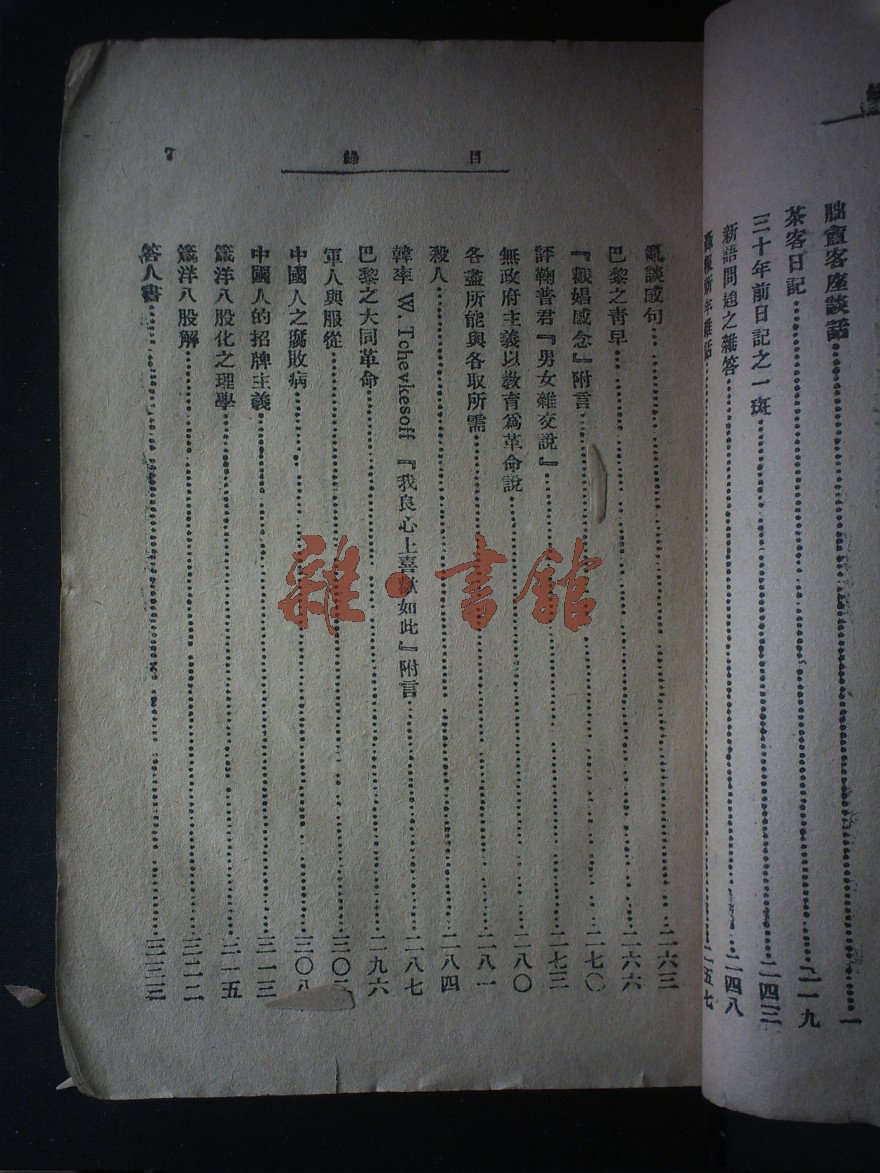 朏盫客座談話……一
茶客日記……二一九
三十年前日記之一斑……二四三
新語問題之雜答……二四八
二五七
目錄
7
亂談感句……二六三
巴黎之靑早……二六六
『觀娼感念』附言……二七〇
評鞠普君『男女雜交說』……二七三
無政府主義以敎育爲革命說……二八〇
各盡所能與各取所需……二八一
殺人……二八四
韓率 W. Tchevkesoff 『我良心上喜歡如此』附言……二八七
巴黎之大同革命……二九六
軍人與服從……三〇
中國人之腐敗病……三〇八
中國人的招牌主義……三一三
箴洋八股化之理學……三一五
箴洋八股解……三二二
答人書……三三三
雜·書館